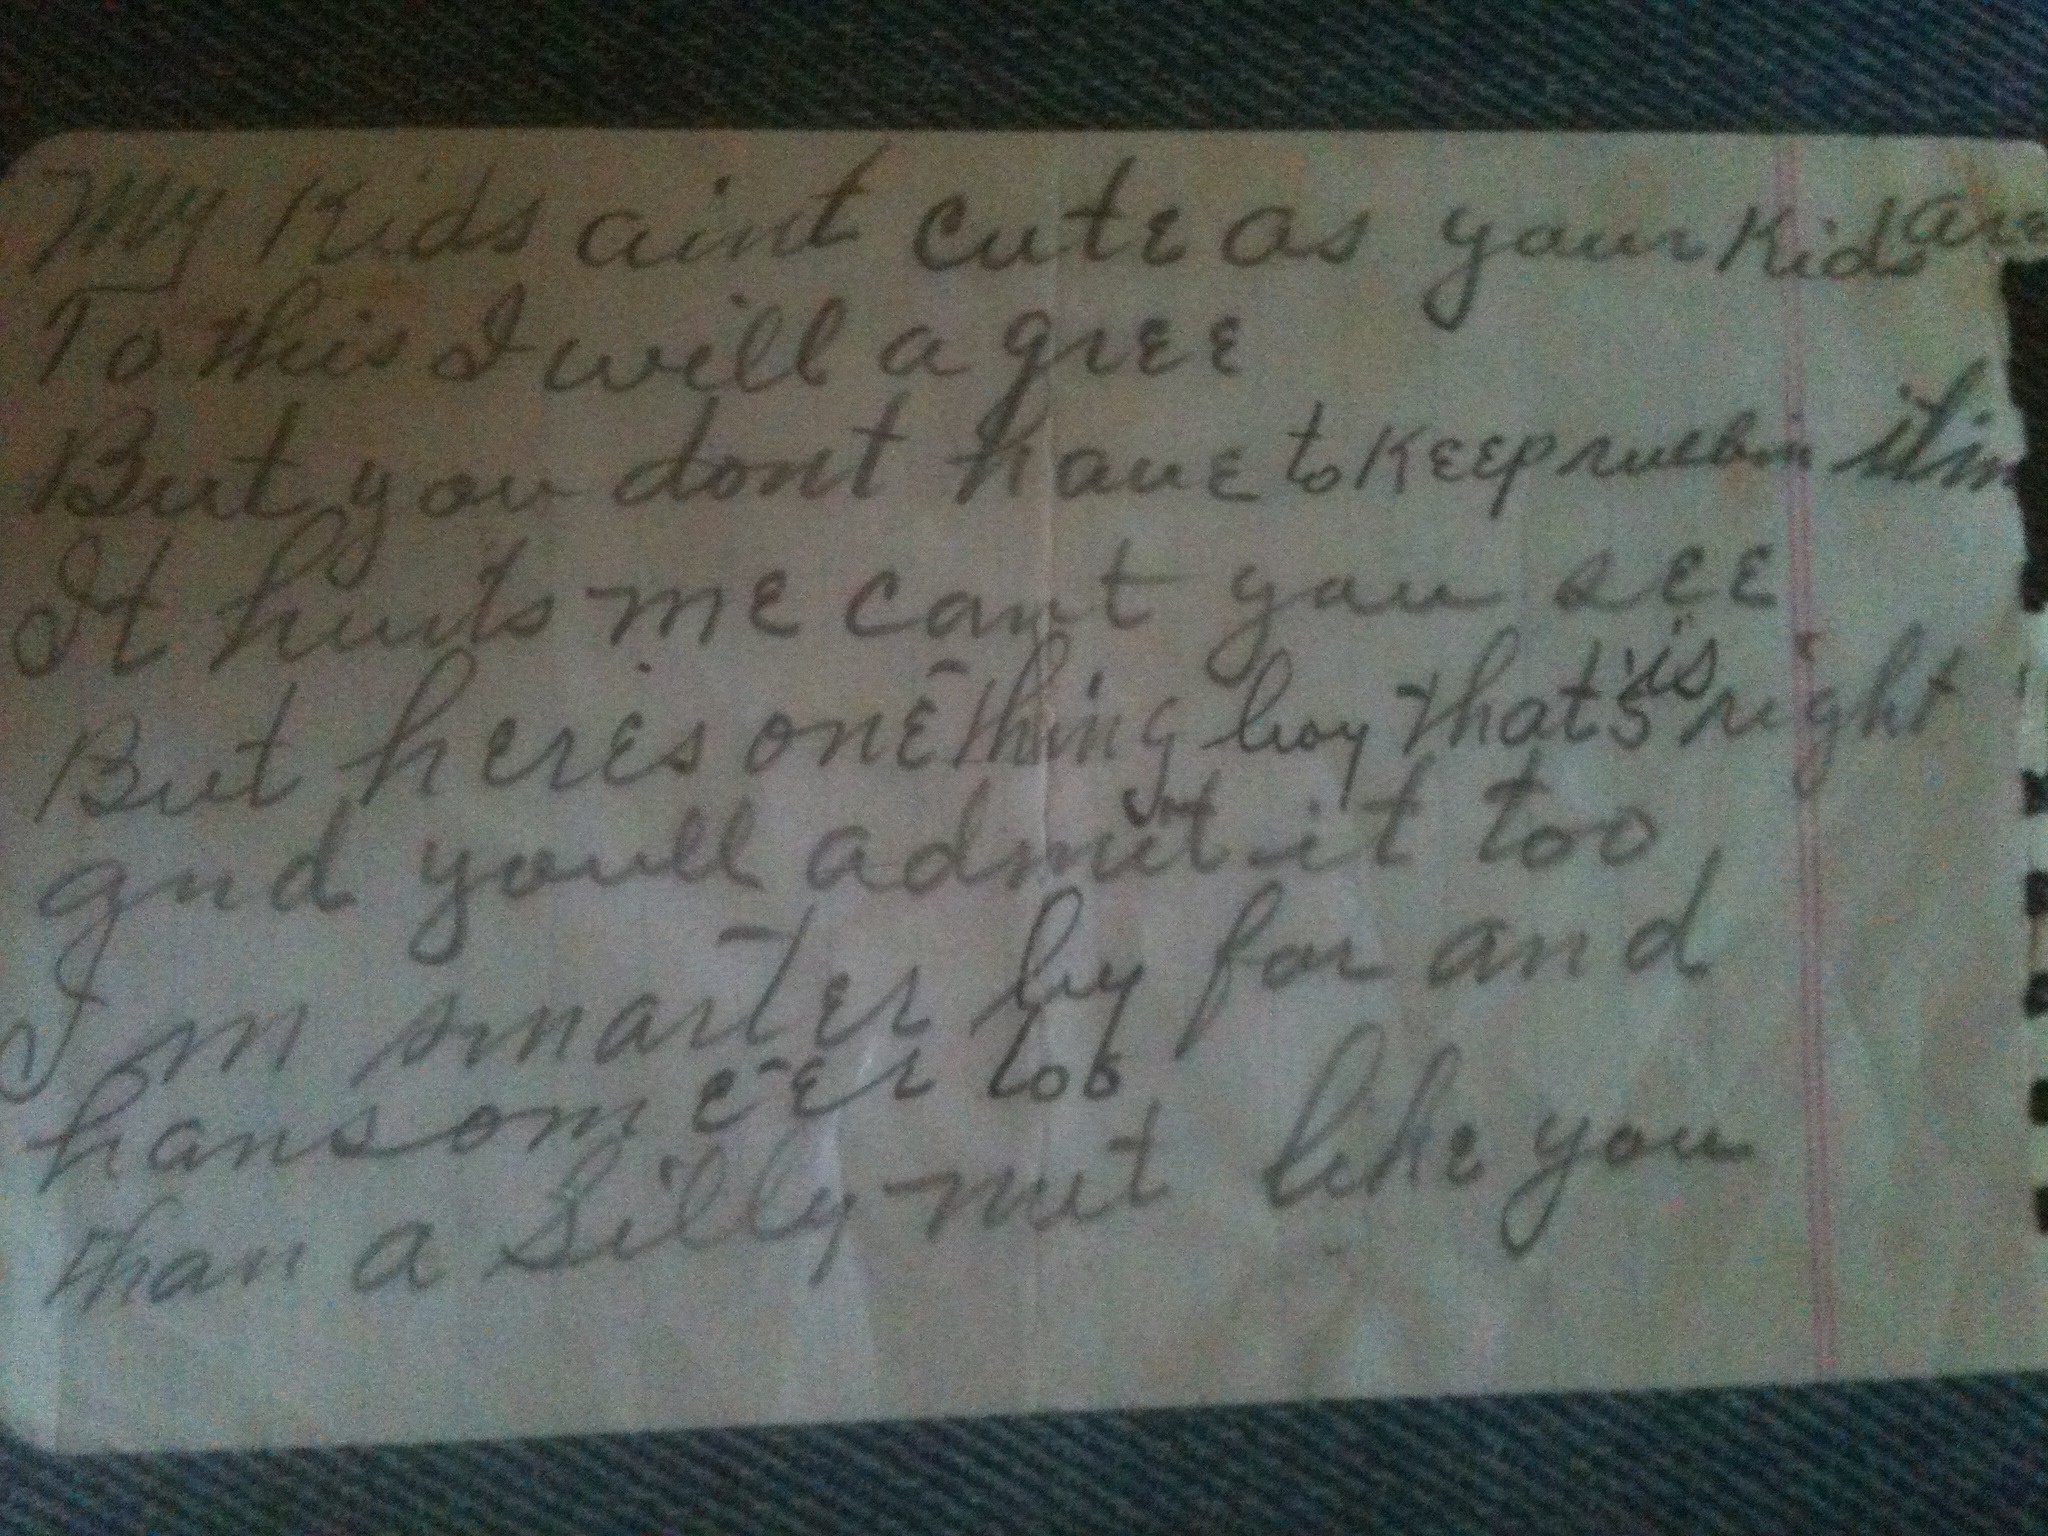 My Kids aint cute as your Kids are
To this I will agree
But you dont have to Keep rubbin it in
It hurts me cant you see
But here's one thing boy that's is right
and youll admit it too
Im smarter by far and
hansomeer too
than a silly nut like you